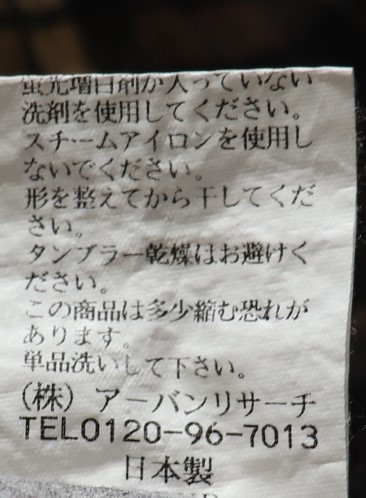 蛍光増白剤が入っていない
洗剤を使用してください。
スチームアイロンを使用し
ないでください。
形を整えてから干してくだ
さい。
タンブラー乾燥はお避けく
ださい。
この商品は多少縮む恐れが
あります。
単品洗いして下さい。
(株) アーバンリサーチ
TEL0120-96-7013
日本製